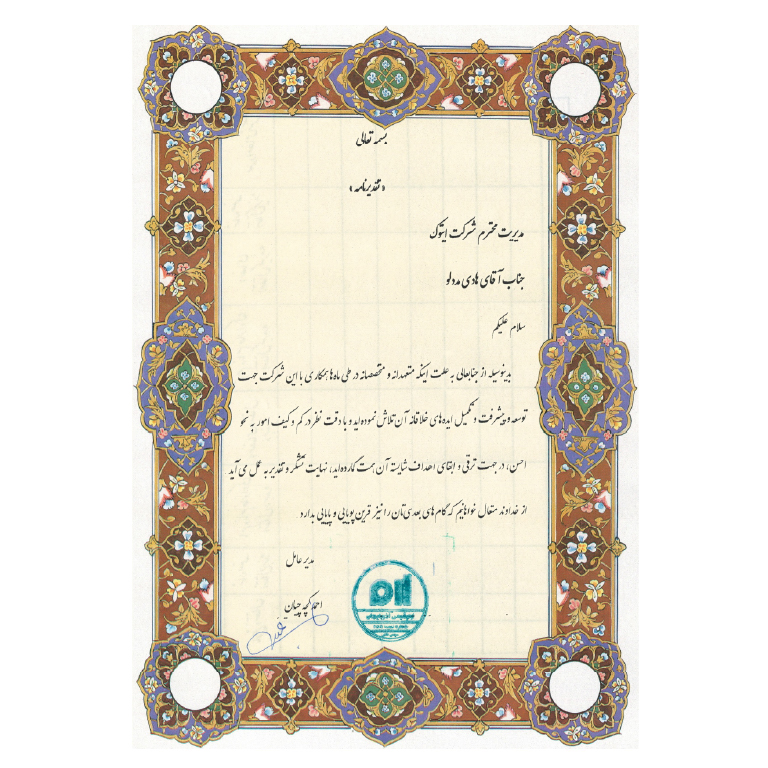 بسمه تعالی
«تقدیرنامه»
مدیریت محترم شرکت ایتوک
جناب آقای هادی مددلو
سلام علیکم
بدینوسیله از جنابعالی به علت اینکه متعهدانه و متخصصانه در طی ماه‌ها همکاری با این شرکت جهت
توسعه و پیشرفت و تکمیل ایده‌های خلاقانه آن تلاش نموده‌اید و با دقت نظر در کم و کیف امور به نحو
احسن، در جهت ترقی و ابقای اهداف شایسته آن همت گمارده‌اید، نهایت تشکر و تقدیر به عمل می آید
از خداوند متعال خواهانیم که گام های بعدی‌تان را نیز قرین پویایی و پایایی بدارد
مدیر عامل
احمد کچه چیان